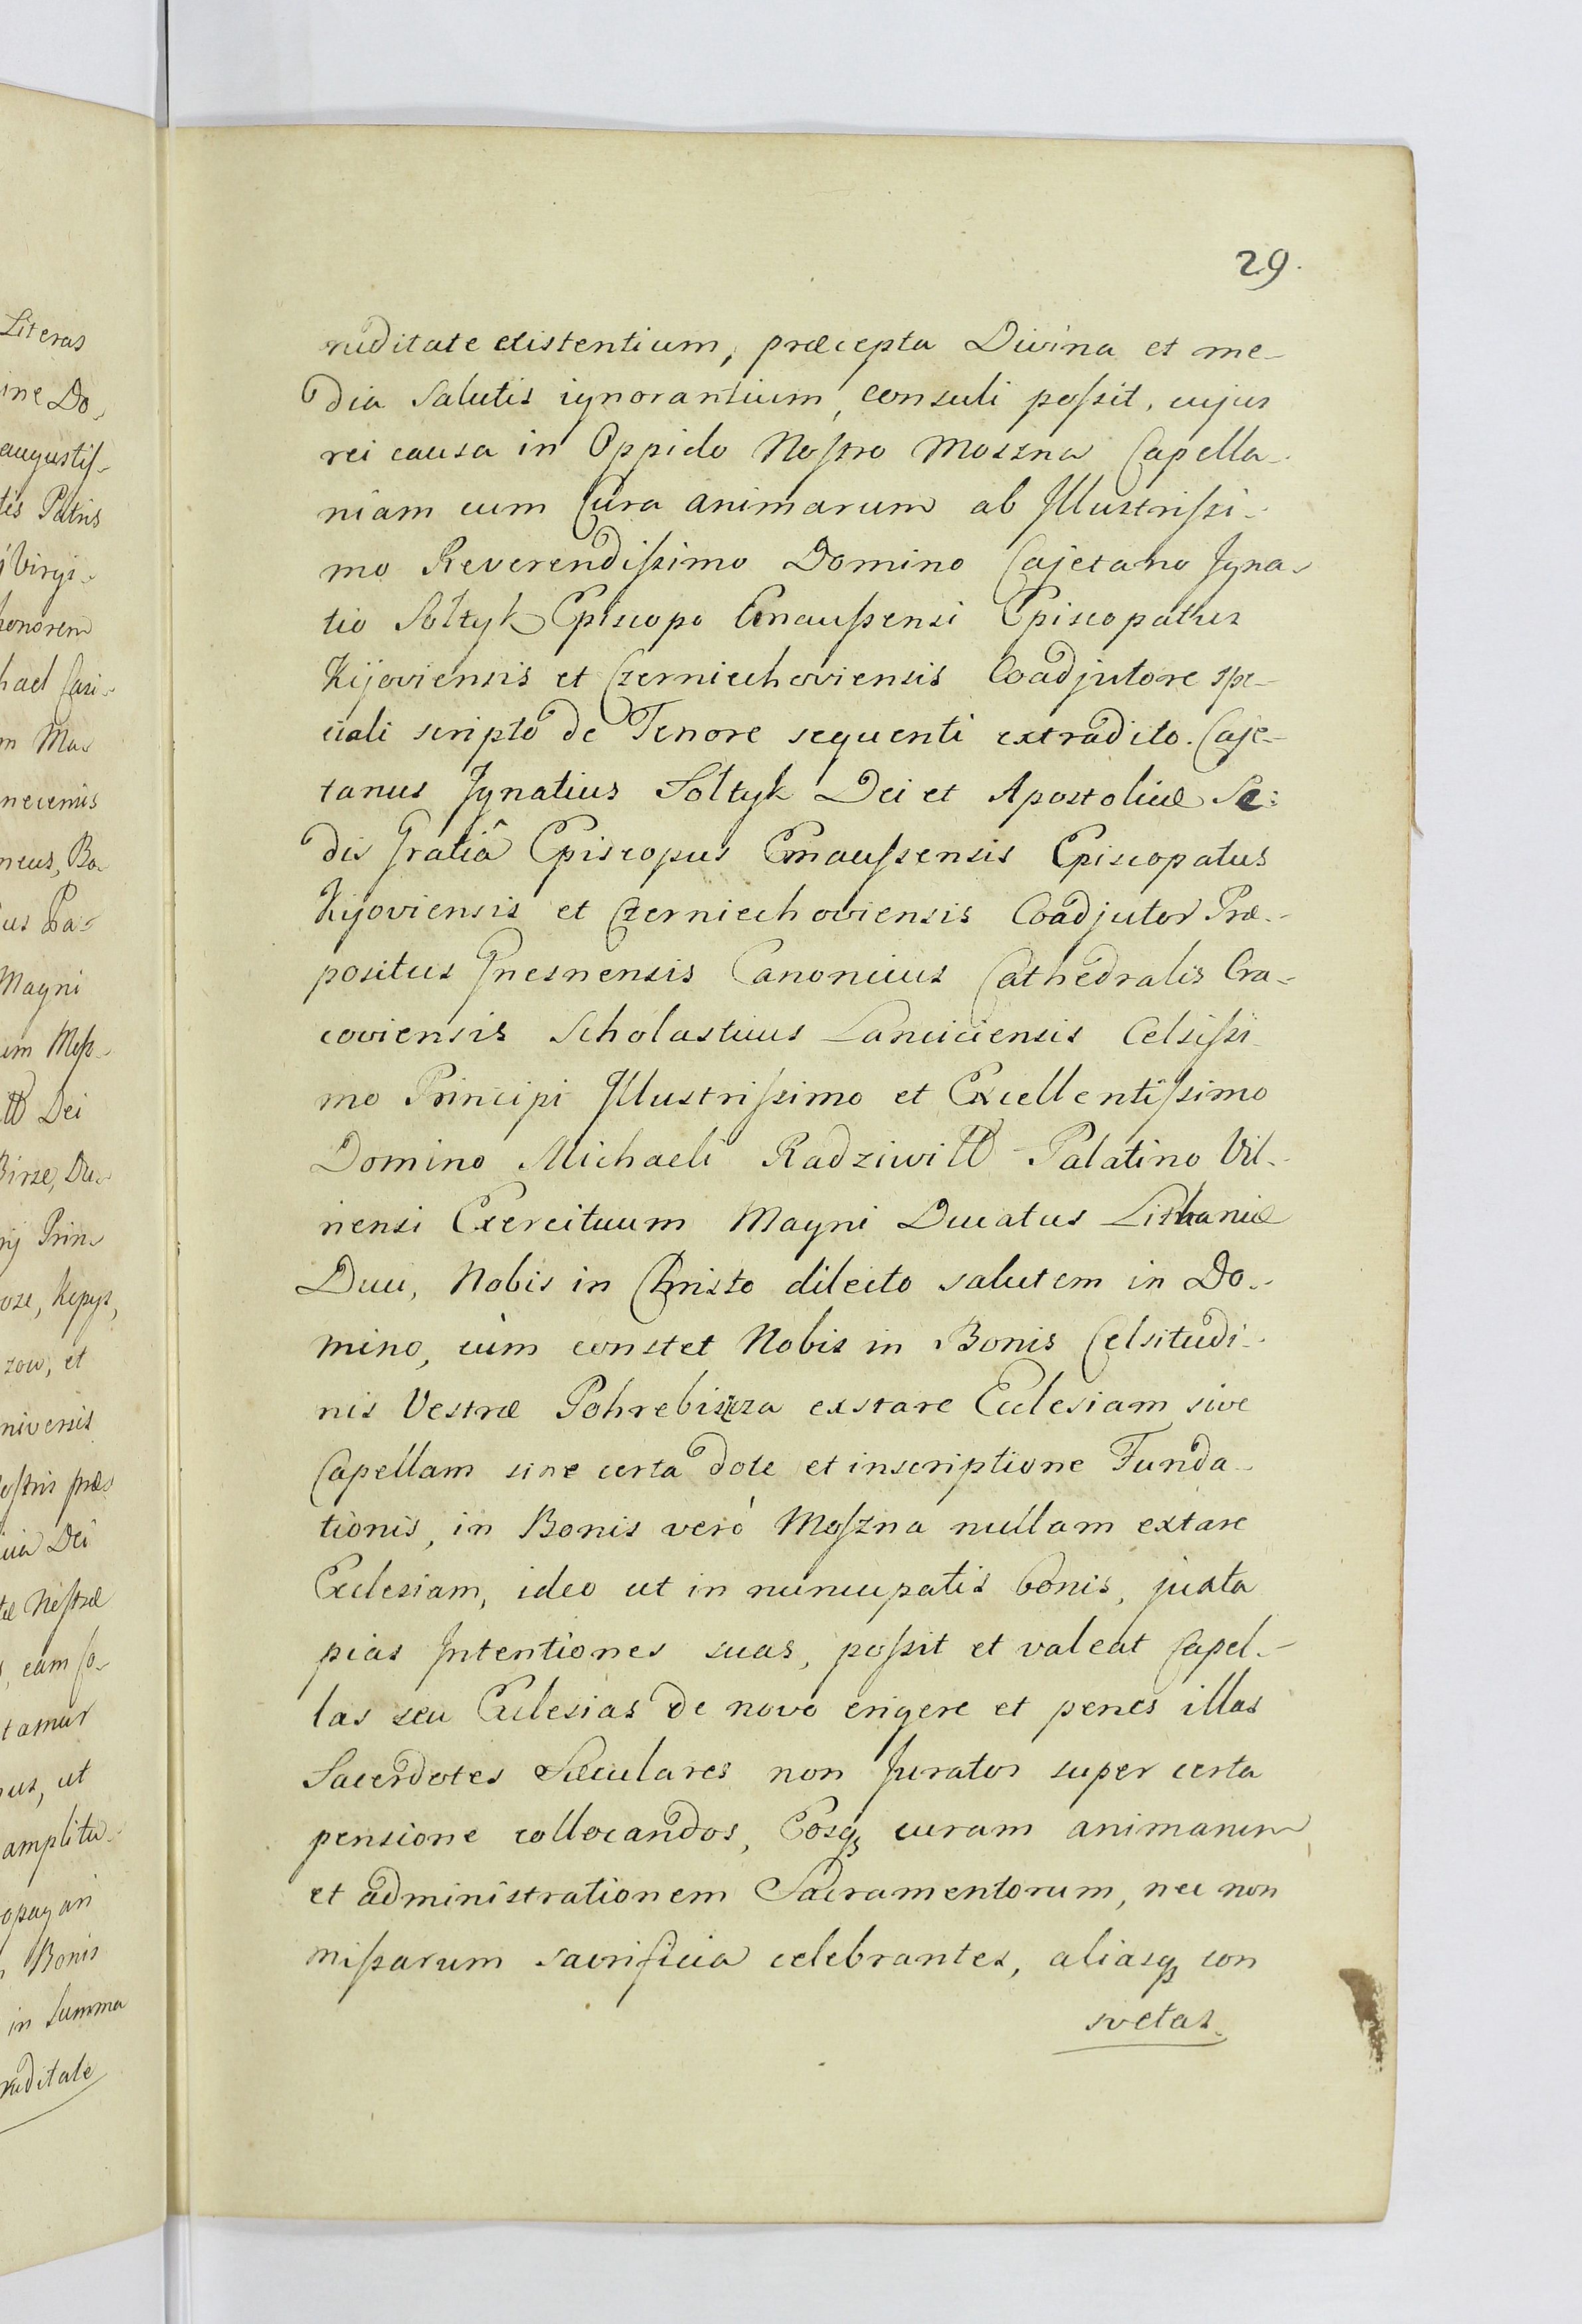 Literas
ine Do-
augustis-
tis Patris
Virgi-
honorem
hael Casi-
m Ma-
necenus
neus, Ba-
us Pa-
Magni
um Moss-
ll Dei
Birze, Du-
rij Prin-
oze, Kopys,
zow, et
niversis
ostris præ-
Dei
Nostræ
, eam so-
tamur
ut
amplitu-
opagari
Bonis
in Summa
ruditate
29.
ruditate existentium, præcepta Divina et me-
dia Salutis ignorantium, consuli possit, cujus
rei causa in Oppido Nostro Moszna Capella-
niam cum Cura animarum ab Illustrissi-
mo Reverendissimo Domino Cajetano Igna-
tio Sołtyk Episcopo Emaussensi Episcopatus
Kijoviensis et Czerniechoviensis Coadjutore spe-
ciali scripto de Tenore sequenti extradito. Caje-
tanus Ignatius Sołtyk Dei et Apostolicæ Se:
dis Gratiâ Episcopus Emaussensis Episcopatus
Kijoviensis et Czerniechoviensis Coadjutor Præ-
positus Gnesnensis Canonicus Cathedralis Cra-
coviensis Scholasticus Lanciciensis Celsissi
mo Principi Illustrissimo et Excellentissimo
Domino Michaeli Radziwiłł Palatino Vil-
nensi Exercituum Magni Ducatus Lithaniæ
Duci, Nobis in Christo dilecto salutem in Do-
mino, cùm constet Nobis in Bonis Celsitudi-
nis Vestræ Pohrebiszcza exstare Ecclesiam sive
Capellam sine certa dote et inscriptione Funda-
tionis, in Bonis verò Moszna nullam extare
Ecclesiam, ideo ut in nuncupatis bonis, juxta
pias Intentiones suas, possit et valeat Capel-
las seu Ecclesias de novo erigere et penes illas
Sacerdotes Sæculares non Juratos super certa
pensione collocandos, Eosq; curam animarum
et administrationem Sacramentorum, nec non
missarum sacrificia celebrantes, aliasq; con
svetas.